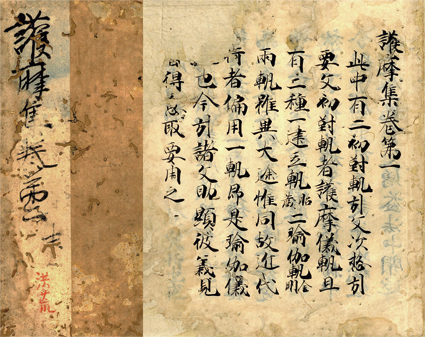 護摩集卷第一
此中有二初對軌引文次惣引
要文初對軌者護摩儀軌且
有二種一建立軌二瑜伽軌
兩軌雖異大途惟同故近代
行者偏用一軌即是瑜伽儀
也今引諸文助顕彼義見
得取要用之
護摩集